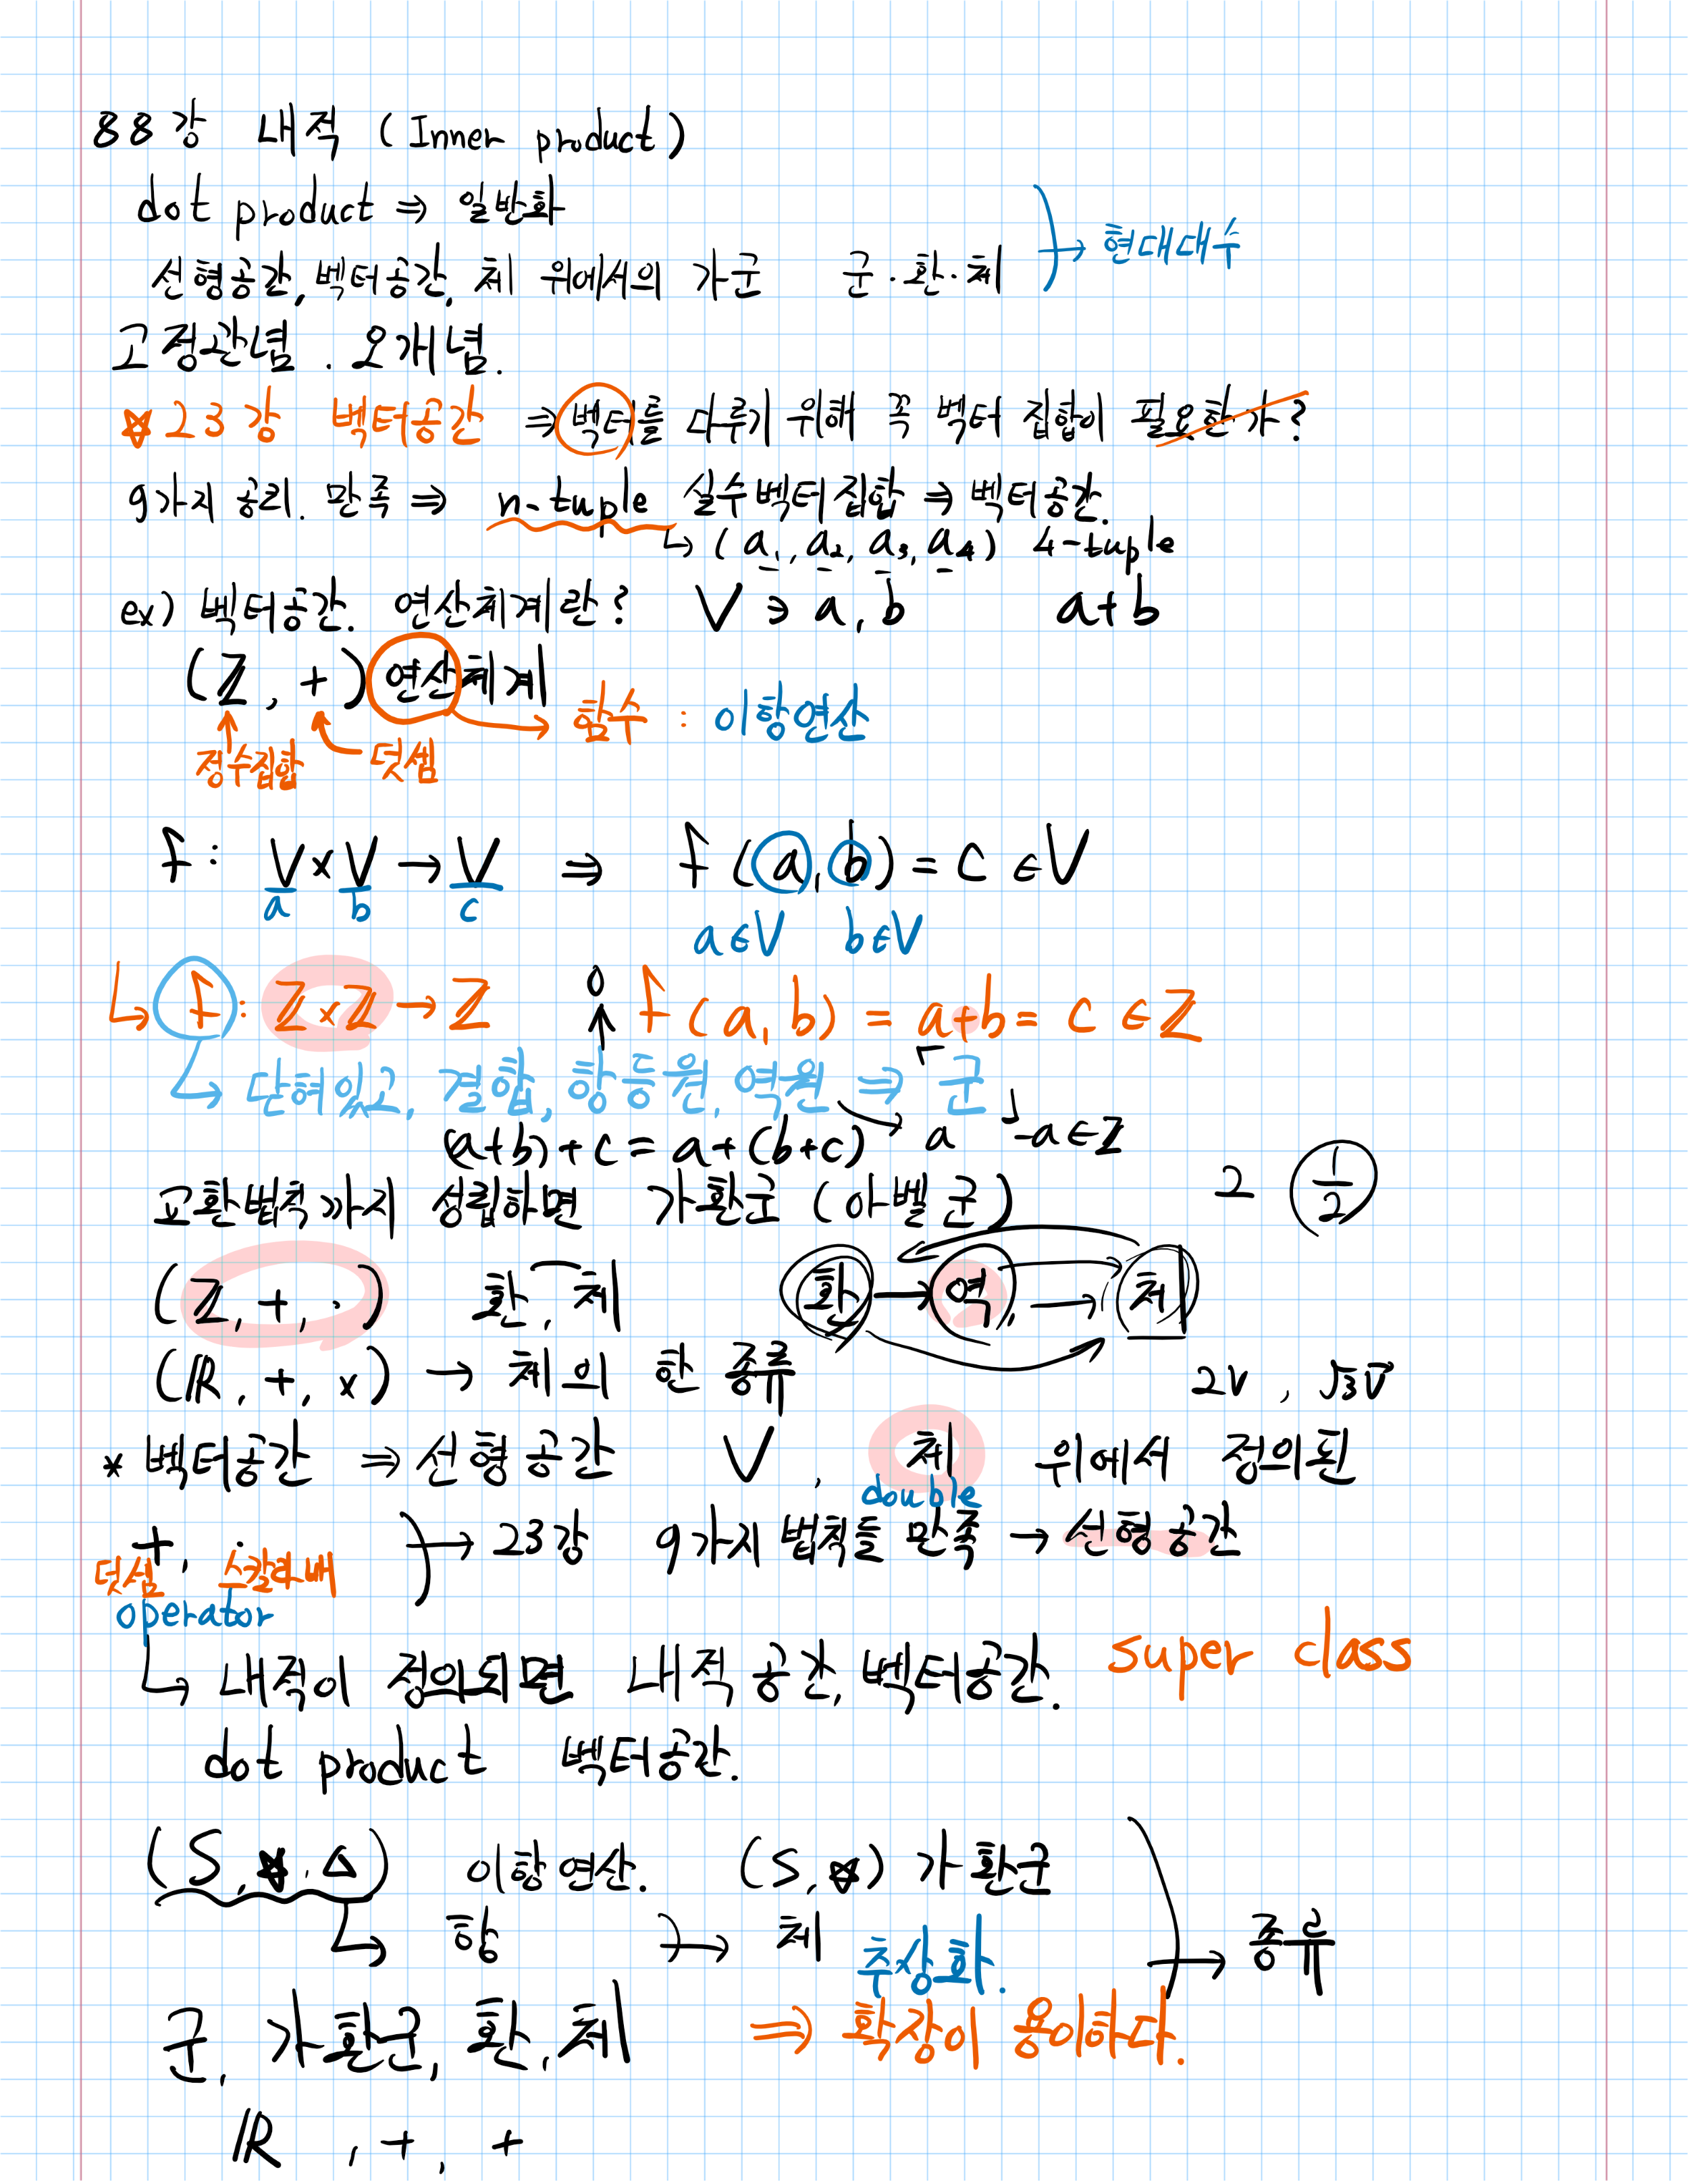 88강 내적 (Inner product)
dot product ⇒ 일반화
선형공간, 벡터공간, 체 위에서의 가군 군·환·체 → 현대대수
고정관념. 오개념.
☆23강 벡터공간 ⇒ 벡터를 다루기 위해 꼭 벡터 집합이 필요한가?
9가지 공리. 만족 ⇒ n-tuple 실수벡터집합 ⇒ 벡터공간.
↳ (a₁, a₂, a₃, a₄) 4-tuple
ex) 벡터공간. 연산체계란? V ∋ a, b a+b
(ℤ, +) 연산체계
→ 함수 : 이항연산
정수집합 덧셈
f : V×V → V ⇒ f(a, b) = c ∈ V
a b c
a∈V b∈V
↳ f : ℤ×ℤ → ℤ 0 ↑ f(a, b) = a+b = c ∈ ℤ
↳ 닫혀있고, 결합, 항등원, 역원 ⇒ 군
(a+b)+c = a+(b+c) → a -a∈ℤ
교환법칙까지 성립하면 가환군 (아벨군) 2 1/2
(ℤ, +, ·) 환, 체 환 → 역, → 체
(ℝ, +, ×) → 체의 한 종류
2V, √3V⃗
* 벡터공간 ⇒ 선형공간 V, 체 위에서 정의된
double
+, · → 23강 9가지 법칙들 만족 → 선형공간
덧셈 스칼라배
operator
↳ 내적이 정의되면 내적 공간, 벡터공간. super class
dot product 벡터공간.
(S, ☆, △) 이항연산. (S, ☆) 가환군
↳ 항 → 체 → 종류
추상화.
군, 가환군, 환, 체 ⇒ 확장이 용이하다.
ℝ, +, +